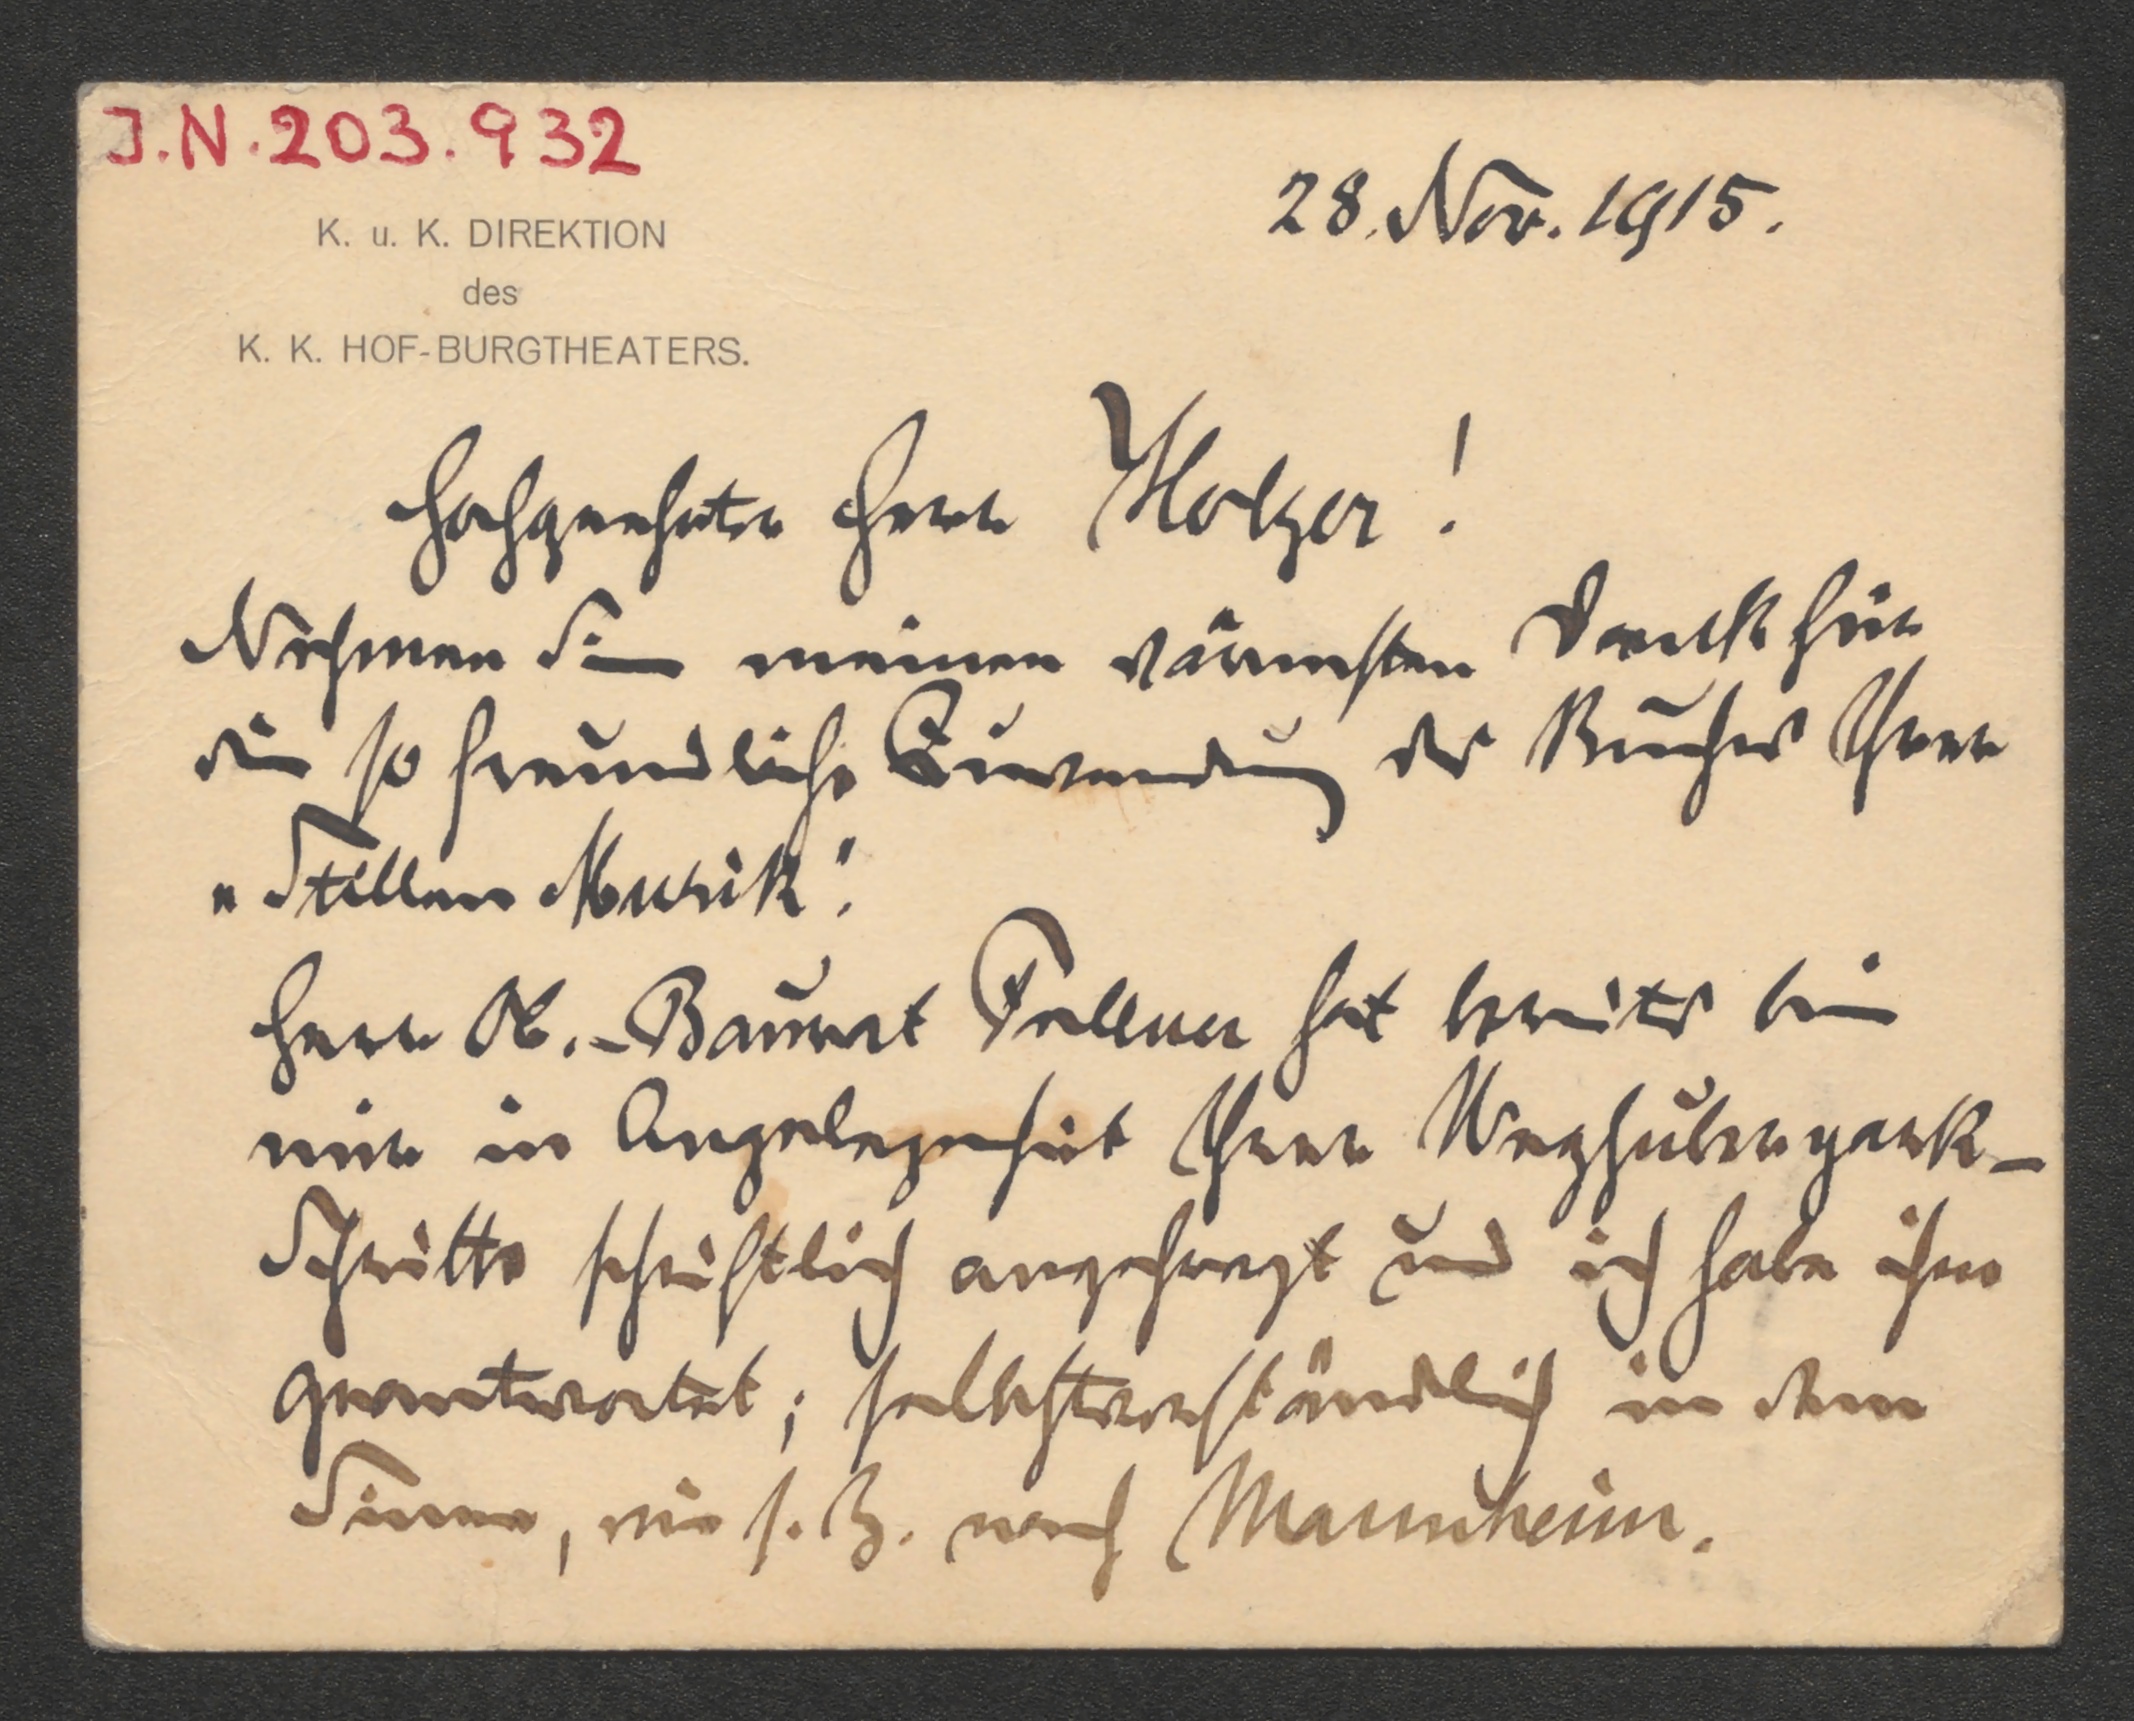 J.N. 203.932
28. Nov. 1915.
K. u. K. DIREKTION
des
K. K. HOF-BURGTHEATERS.
Hochgeehrter Herr Holzer!
Nehmen Sie meinen wärmsten Dank für
die so freundliche Zuwendung des Buches Ihrer
"Stillen Musik".
Herr Ob.-Baurat Fellner hat bereits bei
mir in Angelegenheit Ihrer Weghuberpark-
Schritte schriftlich angefragt und ich habe ihm
geantwortet; selbstverständlich in dem
Sinne, wie s. Z. nach Mannheim.